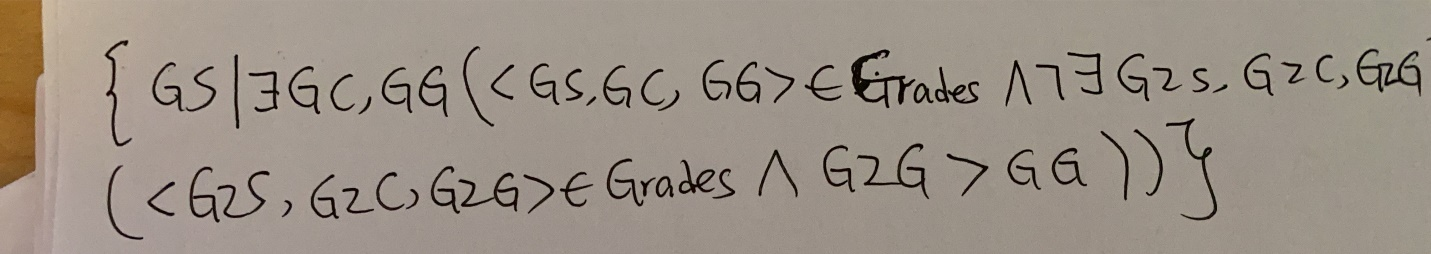 { GS | ∃GC, GG (<GS, GC, GG> ∈ Grades ∧ ¬∃ G2S, G2C, G2G
(<G2S, G2C, G2G> ∈ Grades ∧ G2G > GG ))}